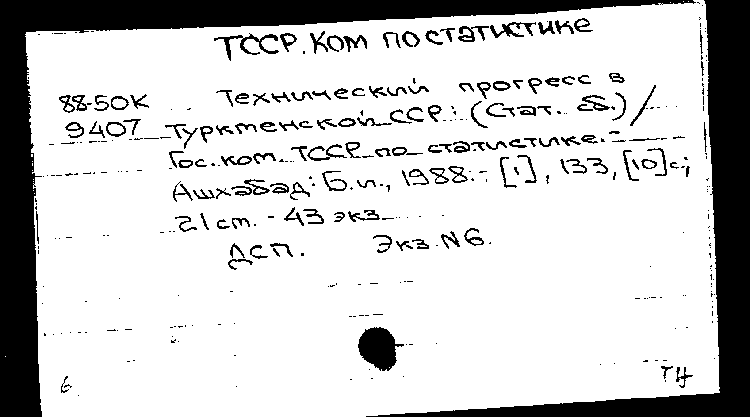 ТССР. Ком по статистике
88-50К Технический прогресс в
9407 Туркменской ССР: (Стат. сб.) /
Гос. ком. ТССР по статистике. -
Ашхабад: Б.и., 1988. - [1], 133, [10] с;
21 см. - 43 экз.
ДСП. Экз. N6.
6